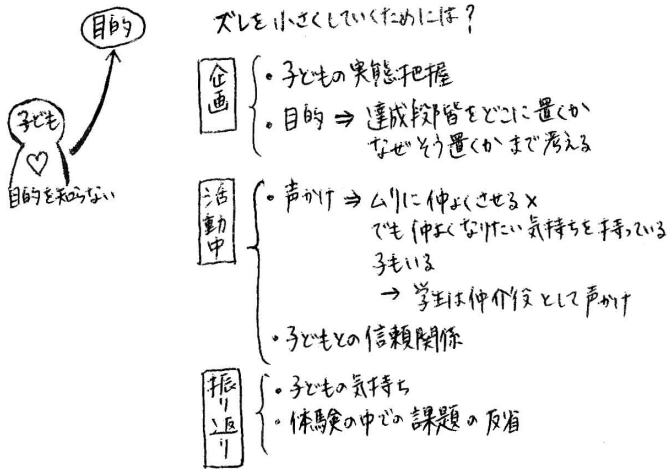 目的
子ども
目的を知らない
ズレを小さくしていくためには？
企画
・子どもの実態把握
・目的 ⇒ 達成段階をどこに置くか
なぜそう置くかまで考える
活動中
・声かけ ⇒ ムリに仲よくさせる×
でも仲よくなりたい気持ちを持っている
子もいる
→ 学生は仲介役として声かけ
・子どもとの信頼関係
振り返り
・子どもの気持ち
・体験の中での課題の反省